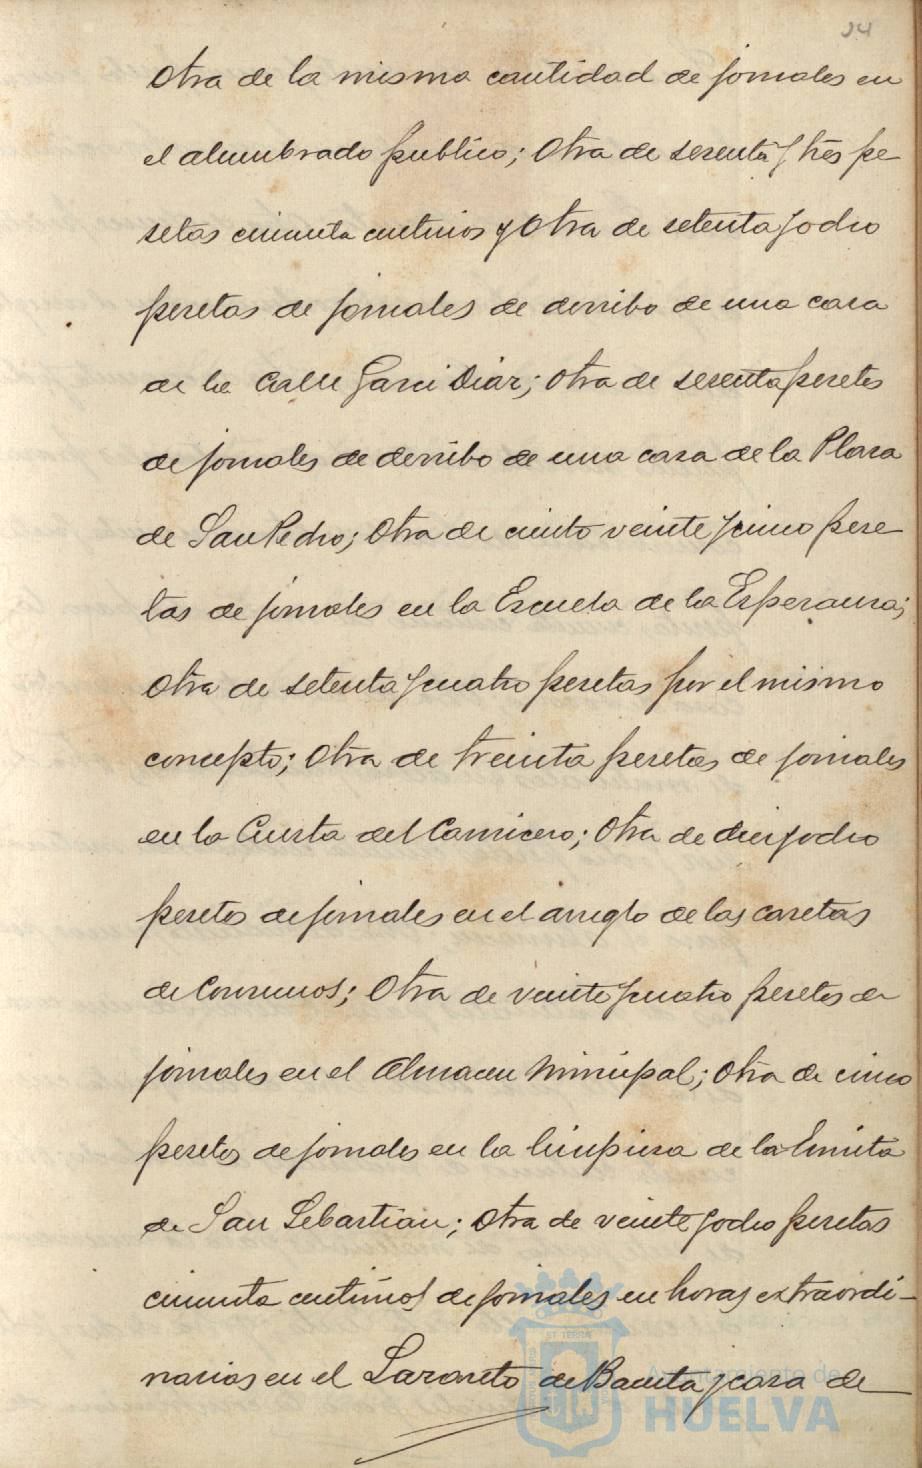 24
Otra de la misma cantidad de jornales en
el alumbrado publico; Otra de sesenta y tres pe-
setas cincuenta centimos y Otra de setenta y ocho
pesetas de jornales de derribo de una casa
de la Calle Garci Diaz; Otra de sesenta pesetas
de jornales de derribo de una casa de la Plaza
de San Pedro; Otra de ciento veinte y cinco pese-
tas de jornales en la Escuela de la Esperanza;
Otra de setenta y cuatro pesetas por el mismo
concepto; Otra de treinta pesetas de jornales
en la Cuesta del Carnicero; Otra de diez y ocho
pesetas de jornales en el arreglo de las casetas
de Consumos; Otra de veinte y cuatro pesetas de
jornales en el Almacen Municipal; Otra de cinco
pesetas de jornales en la limpieza de la Ermita
de San Sebastian; Otra de veinte y ocho pesetas
cincuenta centimos de jornales en horas extraordi-
narias en el Lazareto de Bacuta y casa de
Ayuntamiento de
HUELVA